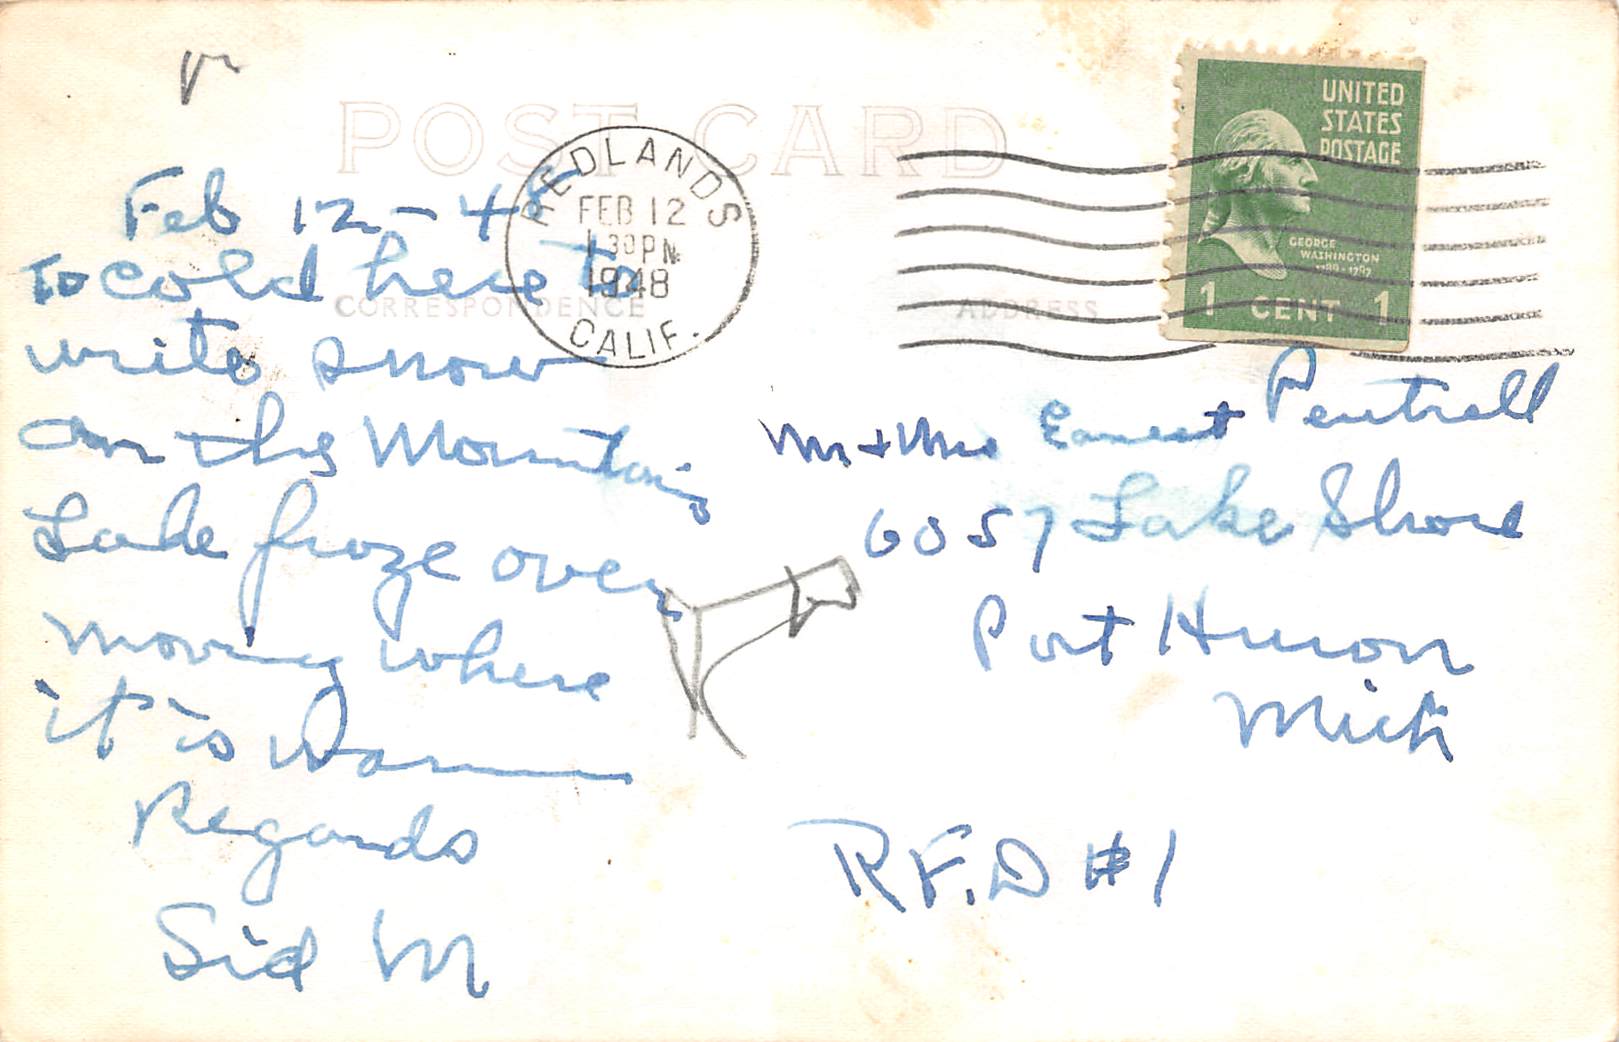 POST CARD
REDLANDS
FEB 12
1 30 PM
1948
CALIF.
UNITED
STATES
POSTAGE
GEORGE
WASHINGTON
1789-1797
1 CENT 1
CORRESPONDENCE
ADDRESS
Feb 12-48
To cold here to
write snow
on the Mountains
Lake froze over
moving where
it is warm
Regards
Sid M
Mr + Mrs Earnest Pentrell
6057 Lake Shore
Port Huron
Mich
R.F.D #1